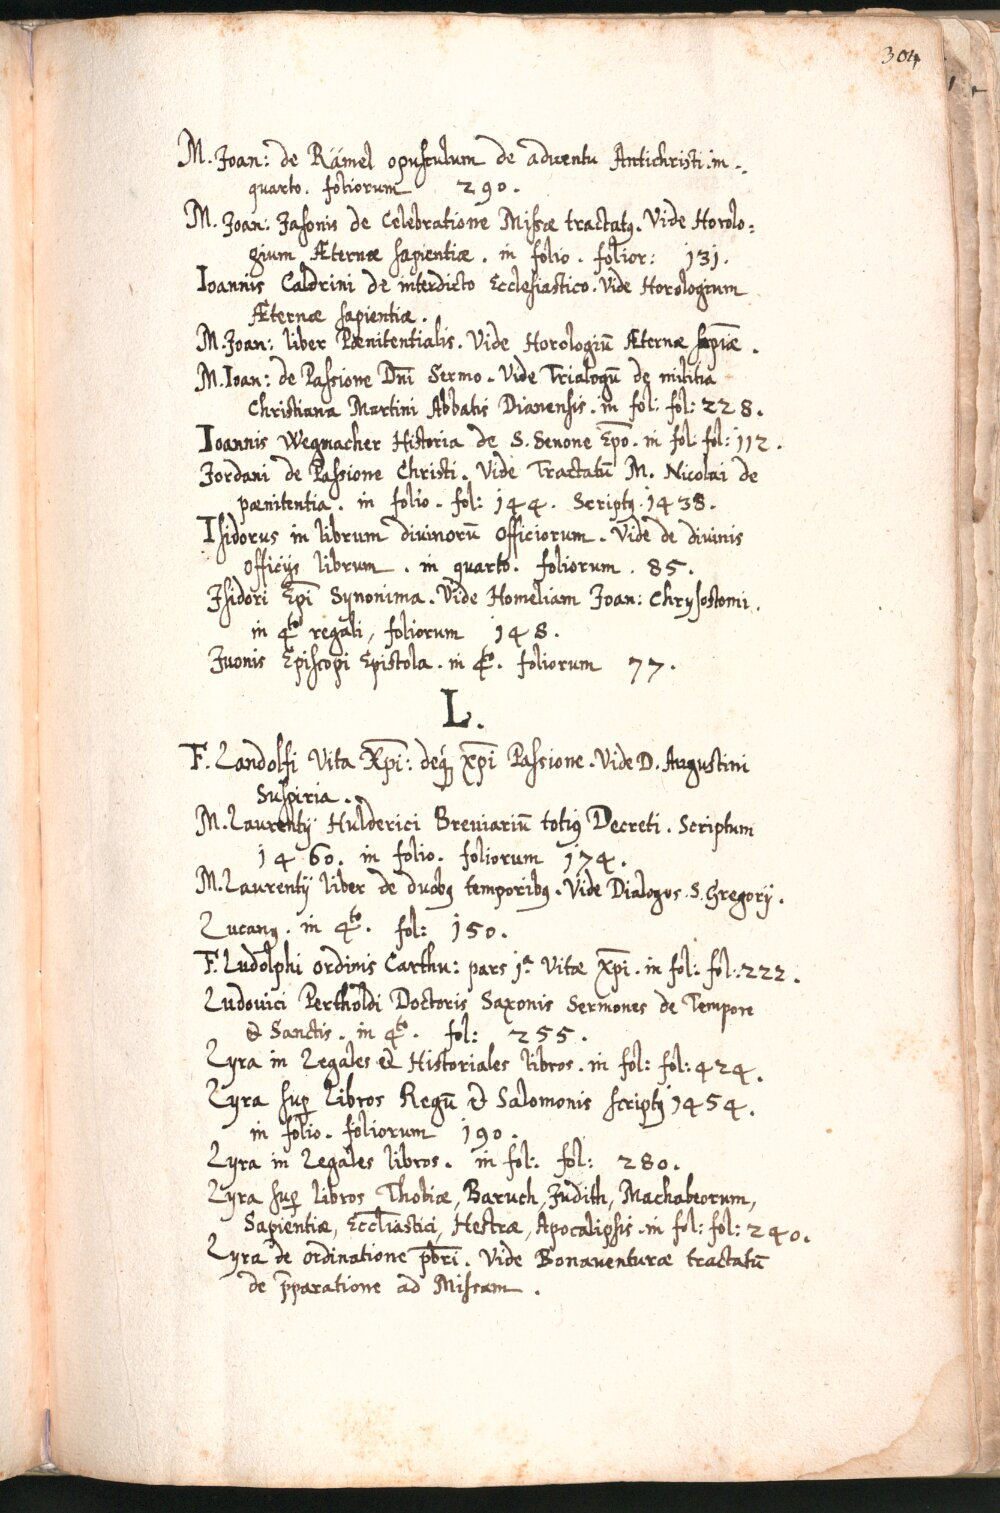 304
M. Joan: de Rämel opusculum de aduentu Antichristi. in
quarto. foliorum 290.
M. Joan: Jasonis de Celebratione Missæ tractatꝰ. Vide Horolo=
gium Æternæ sapientiæ. in folio. folior: 131.
Ioannis Caldrini de interdicto Ecclesiastico. Vide Horologium
Æternæ sapientiæ.
M. Joan: liber Pœnitentialis. Vide Horologiū Æternæ sapīæ.
M. Ioan: de Passione Dn̄i Sermo. Vide Trialogū de militia
Christiana Martini Abbatis Dianensis. in fol: fol: 228.
Ioannis Wegmacher Historia de S. Senone Ep̄o. in fol: fol: 112.
Jordani de Passione Christi. Vide Tractatū M. Nicolai de
pœnitentia. in folio. fol: 144. Scriptꝰ. 1438.
Isidorus in librum diuinorū Officiorum. Vide de diuinis
Officijs librum. in quarto. foliorum. 85.
Isidori Ep̄i Synonima. Vide Homeliam Joan: Chrysostomi.
in 4to regali, foliorum 148.
Juonis Episcopi Epistola. in 4to. foliorum 77.
L.
F. Landolfi Vita Xp̄i: deq́ꝫ xp̄i Passione. Vide D. Augustini
Suspiria.
M. Laurentij Hulderici Breuiariū totiꝰ Decreti. Scriptum
1460. in folio. foliorum 174.
M. Laurentij liber de duobꝰ temporibꝰ. Vide Dialogos. S. Gregorij.
Lucanꝰ. in 4to. fol: 150.
F. Ludolphi ordinis Carthu: pars 1a Vitæ Xp̄i. in fol: fol: 222.
Ludouici Pertholdi Doctoris Saxonis Sermones de Tempore
& Sanctis. in 4to. fol: 255.
Lyra in Legales & Historiales libros. in fol: fol: 424.
Lyra suꝑ Libros Regū & Salomonis scriptꝰ 1454.
in folio. foliorum 190.
Lyra in Legales libros. in fol: fol: 280.
Lyra suꝑ libros Thobiæ, Baruch, Judith, Machabeorum,
Sapientiæ, Eccl̄iastici, Hestræ, Apocalipsis. in fol: fol: 240.
Lyra de ordinatione pb̄ri. Vide Bonauenturæ tractatū
de p̄paratione ad Missam.